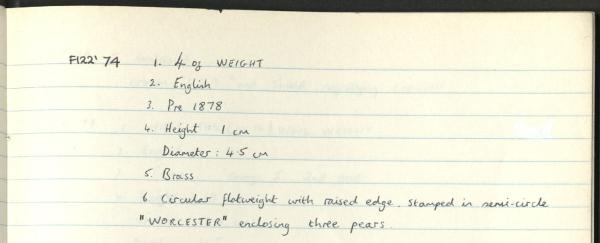 F122'74 1. 4 oz WEIGHT
2. English
3. Pre 1878
4. Height 1 cm
Diameter : 4.5 cm
5. Brass
6. Circular flatweight with raised edge. Stamped in semi-circle
"WORCESTER" enclosing three pears.